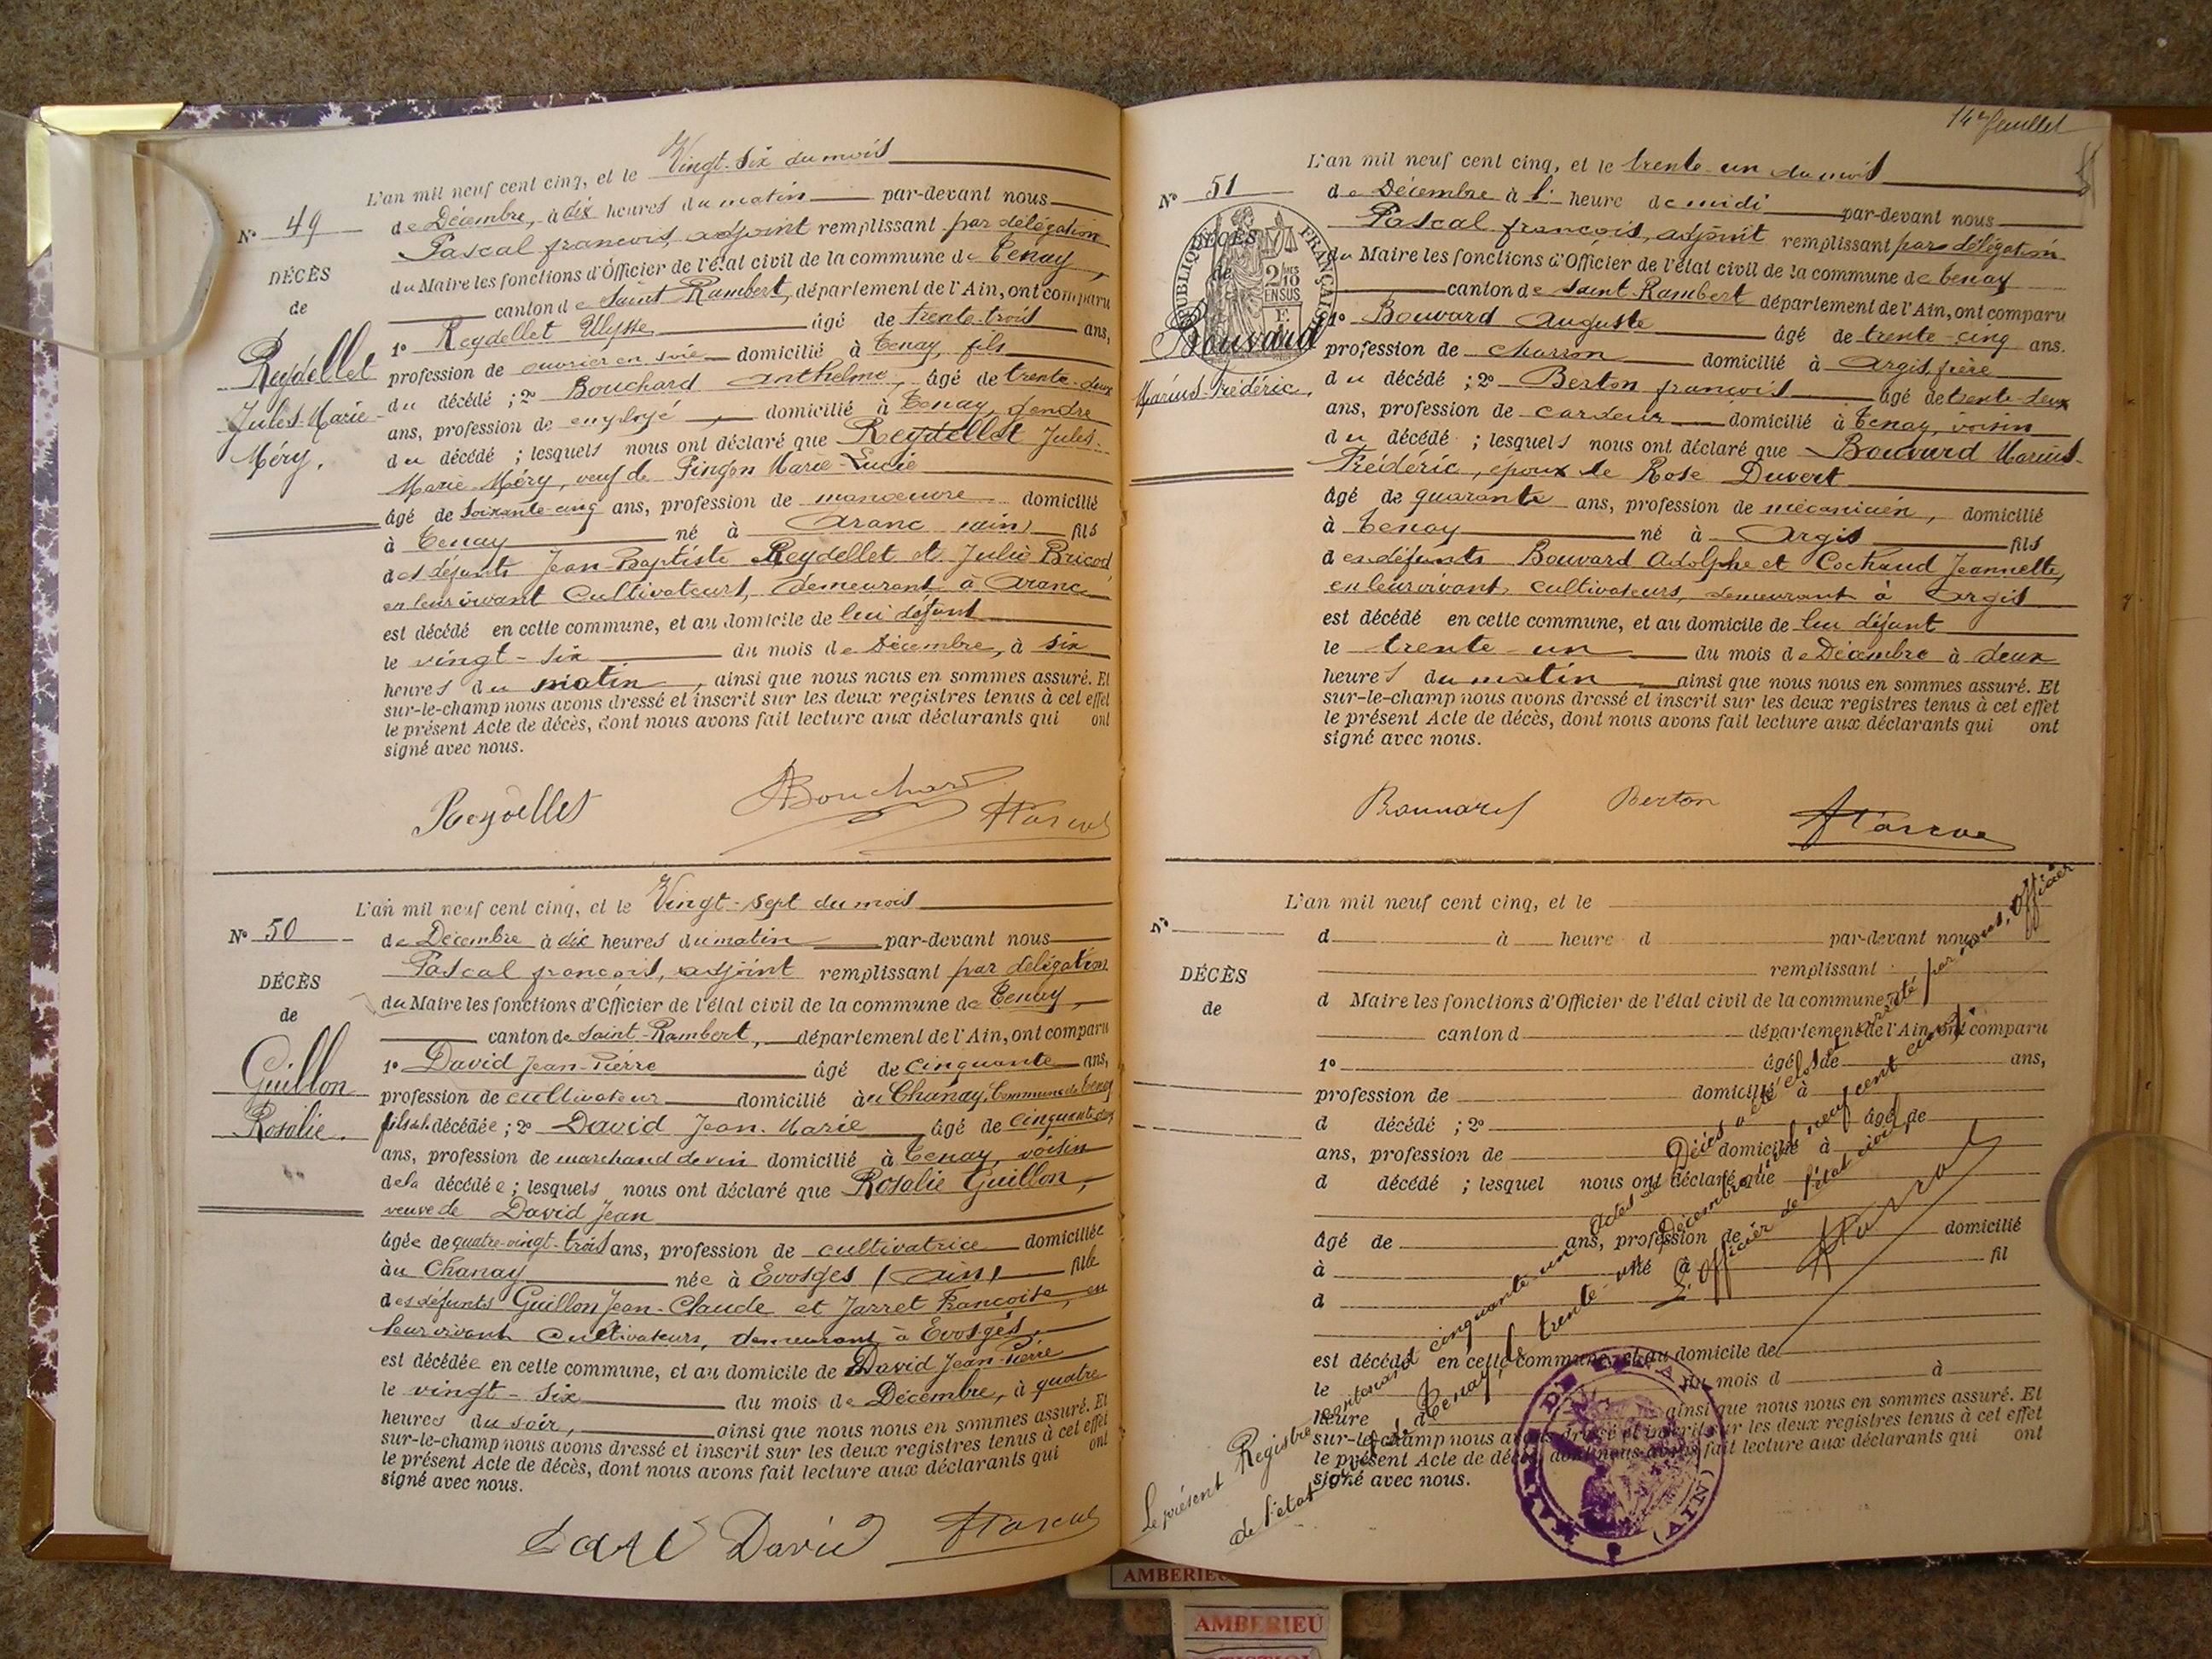 L'an mil neuf cent cinq, et le Vingt-six du mois
N° 49
de Décembre, à dix heures du matin par-devant nous
Pascal françois, adjoint remplissant par délégation
DÉCÈS
du Maire les fonctions d'Officier de l'état civil de la commune de Tenay,
de
canton de Saint Rambert, département de l'Ain, ont comparu
Reydellet
1° Reydellet Ulysse âgé de trente-trois ans,
profession de ouvrier en soie domicilié à Tenay, fils
Jules-Marie
du décédé ; 2° Bouchard Anthelme, âgé de trente-deux
ans, profession de employé, domicilié à Tenay, gendre
Méry.
du décédé ; lesquels nous ont déclaré que Reydellet Jules-
Marie Méry, veuf de Pingon Marie-Lucie
âgé de soixante-cinq ans, profession de manoeuvre domicilié
à Tenay né à Aranc (ain) fils
des défunts Jean-Baptiste Reydellet et Julie Bricod,
en leur vivant cultivateurs, demeurant à Aranc
est décédé en cette commune, et au domicile de lui défunt
le vingt-six du mois de Décembre, à six
heures du matin, ainsi que nous nous en sommes assuré. Et
sur-le-champ nous avons dressé et inscrit sur les deux registres tenus à cet effet
le présent Acte de décès, dont nous avons fait lecture aux déclarants qui ont
signé avec nous.
Reydellet ABouchard FPascal
L'an mil neuf cent cinq, et le Vingt-sept du mois
N° 50
de Décembre à dix heures du matin par-devant nous
Pascal françois, adjoint remplissant par délégation
DÉCÈS
du Maire les fonctions d'Officier de l'état civil de la commune de Tenay,
de
canton de Saint-Rambert, département de l'Ain, ont comparu
Guillon
1° David Jean-Pierre âgé de cinquante ans,
profession de cultivateur domicilié à u Chanay, Commune de Tenay
Rosalie.
fils de la décédée ; 2° David Jean-Marie âgé de cinquante-deux
ans, profession de marchand de vin domicilié à Tenay, voisin
de la décédée ; lesquels nous ont déclaré que Rosalie Guillon,
veuve de David Jean
âgée de quatre-vingt-trois ans, profession de cultivatrice domiciliée
àu Chanay née à Evosges (Ain) fille
des défunts Guillon Jean-Claude et Jarret Françoise, en
leur vivant cultivateurs, demeurant à Evosges,
est décédée en cette commune, et au domicile de David Jean-Pierre
le vingt-six du mois de Décembre, à quatre
heures du soir, ainsi que nous nous en sommes assuré. Et
sur-le-champ nous avons dressé et inscrit sur les deux registres tenus à cet effet
le présent Acte de décès, dont nous avons fait lecture aux déclarants qui ont
signé avec nous.
David FPascal
14e feuillet
L'an mil neuf cent cinq, et le trente-un du mois
N° 51
de Décembre à 1 heure de midi par-devant nous
Pascal françois, adjoint remplissant par délégation
DÉCÈS
RÉPUBLIQUE FRANÇAISE
du Maire les fonctions d'Officier de l'état civil de la commune de Tenay
de
2/10 EN SUS
canton de Saint-Rambert département de l'Ain, ont comparu
Bouvard
1° Bouvard Auguste âgé de trente-cinq ans.
profession de charron domicilié à Argis, frère
Marius-Frédéric,
du décédé ; 2° Berton françois âgé de trente-deux
ans, profession de cardeur domicilié à Tenay, voisin
du décédé ; lesquels nous ont déclaré que Bouvard Marius-
Frédéric, époux de Rose Duvert
âgé de quarante ans, profession de mécanicien, domicilié
à Tenay né à Argis fils
des défunts Bouvard Adolphe et Cochaud Jeannette,
en leur vivant, cultivateurs, demeurant à Argis
est décédé en cette commune, et au domicile de lui défunt
le trente-un du mois de Décembre à deux
heures du matin ainsi que nous nous en sommes assuré. Et
sur-le-champ nous avons dressé et inscrit sur les deux registres tenus à cet effet
le présent Acte de décès, dont nous avons fait lecture aux déclarants qui ont
signé avec nous.
Bouvard Berton FPascal
L'an mil neuf cent cinq, et le
N°
d à heure d par-devant nous
remplissant
DÉCÈS
d Maire les fonctions d'Officier de l'état civil de la commune
de
canton d département de l'Ain, ont comparu
1° âgé de ans,
profession de domicilié à
d décédé ; 2° âgé de
ans, profession de domicilié à
d décédé ; lesquel nous ont déclaré que
âgé de ans, profession de domicilié
à né à fil
d
est décédé en cette commune, et au domicile de
le du mois d à
heure d ainsi que nous nous en sommes assuré. Et
sur-le-champ nous avons dressé et inscrit sur les deux registres tenus à cet effet
le présent Acte de décès, dont nous avons fait lecture aux déclarants qui ont
signé avec nous.
Le présent Registre contenant cinquante-un Actes de Décès a été clos et arrêté par nous, Officier
de l'état civil de Tenay, le trente-un Décembre mil neuf cent cinq.
L'Officier de l'état civil,
FPascal
MAIRIE DE TENAY (AIN)
AMBERIEU
AMBERIEU